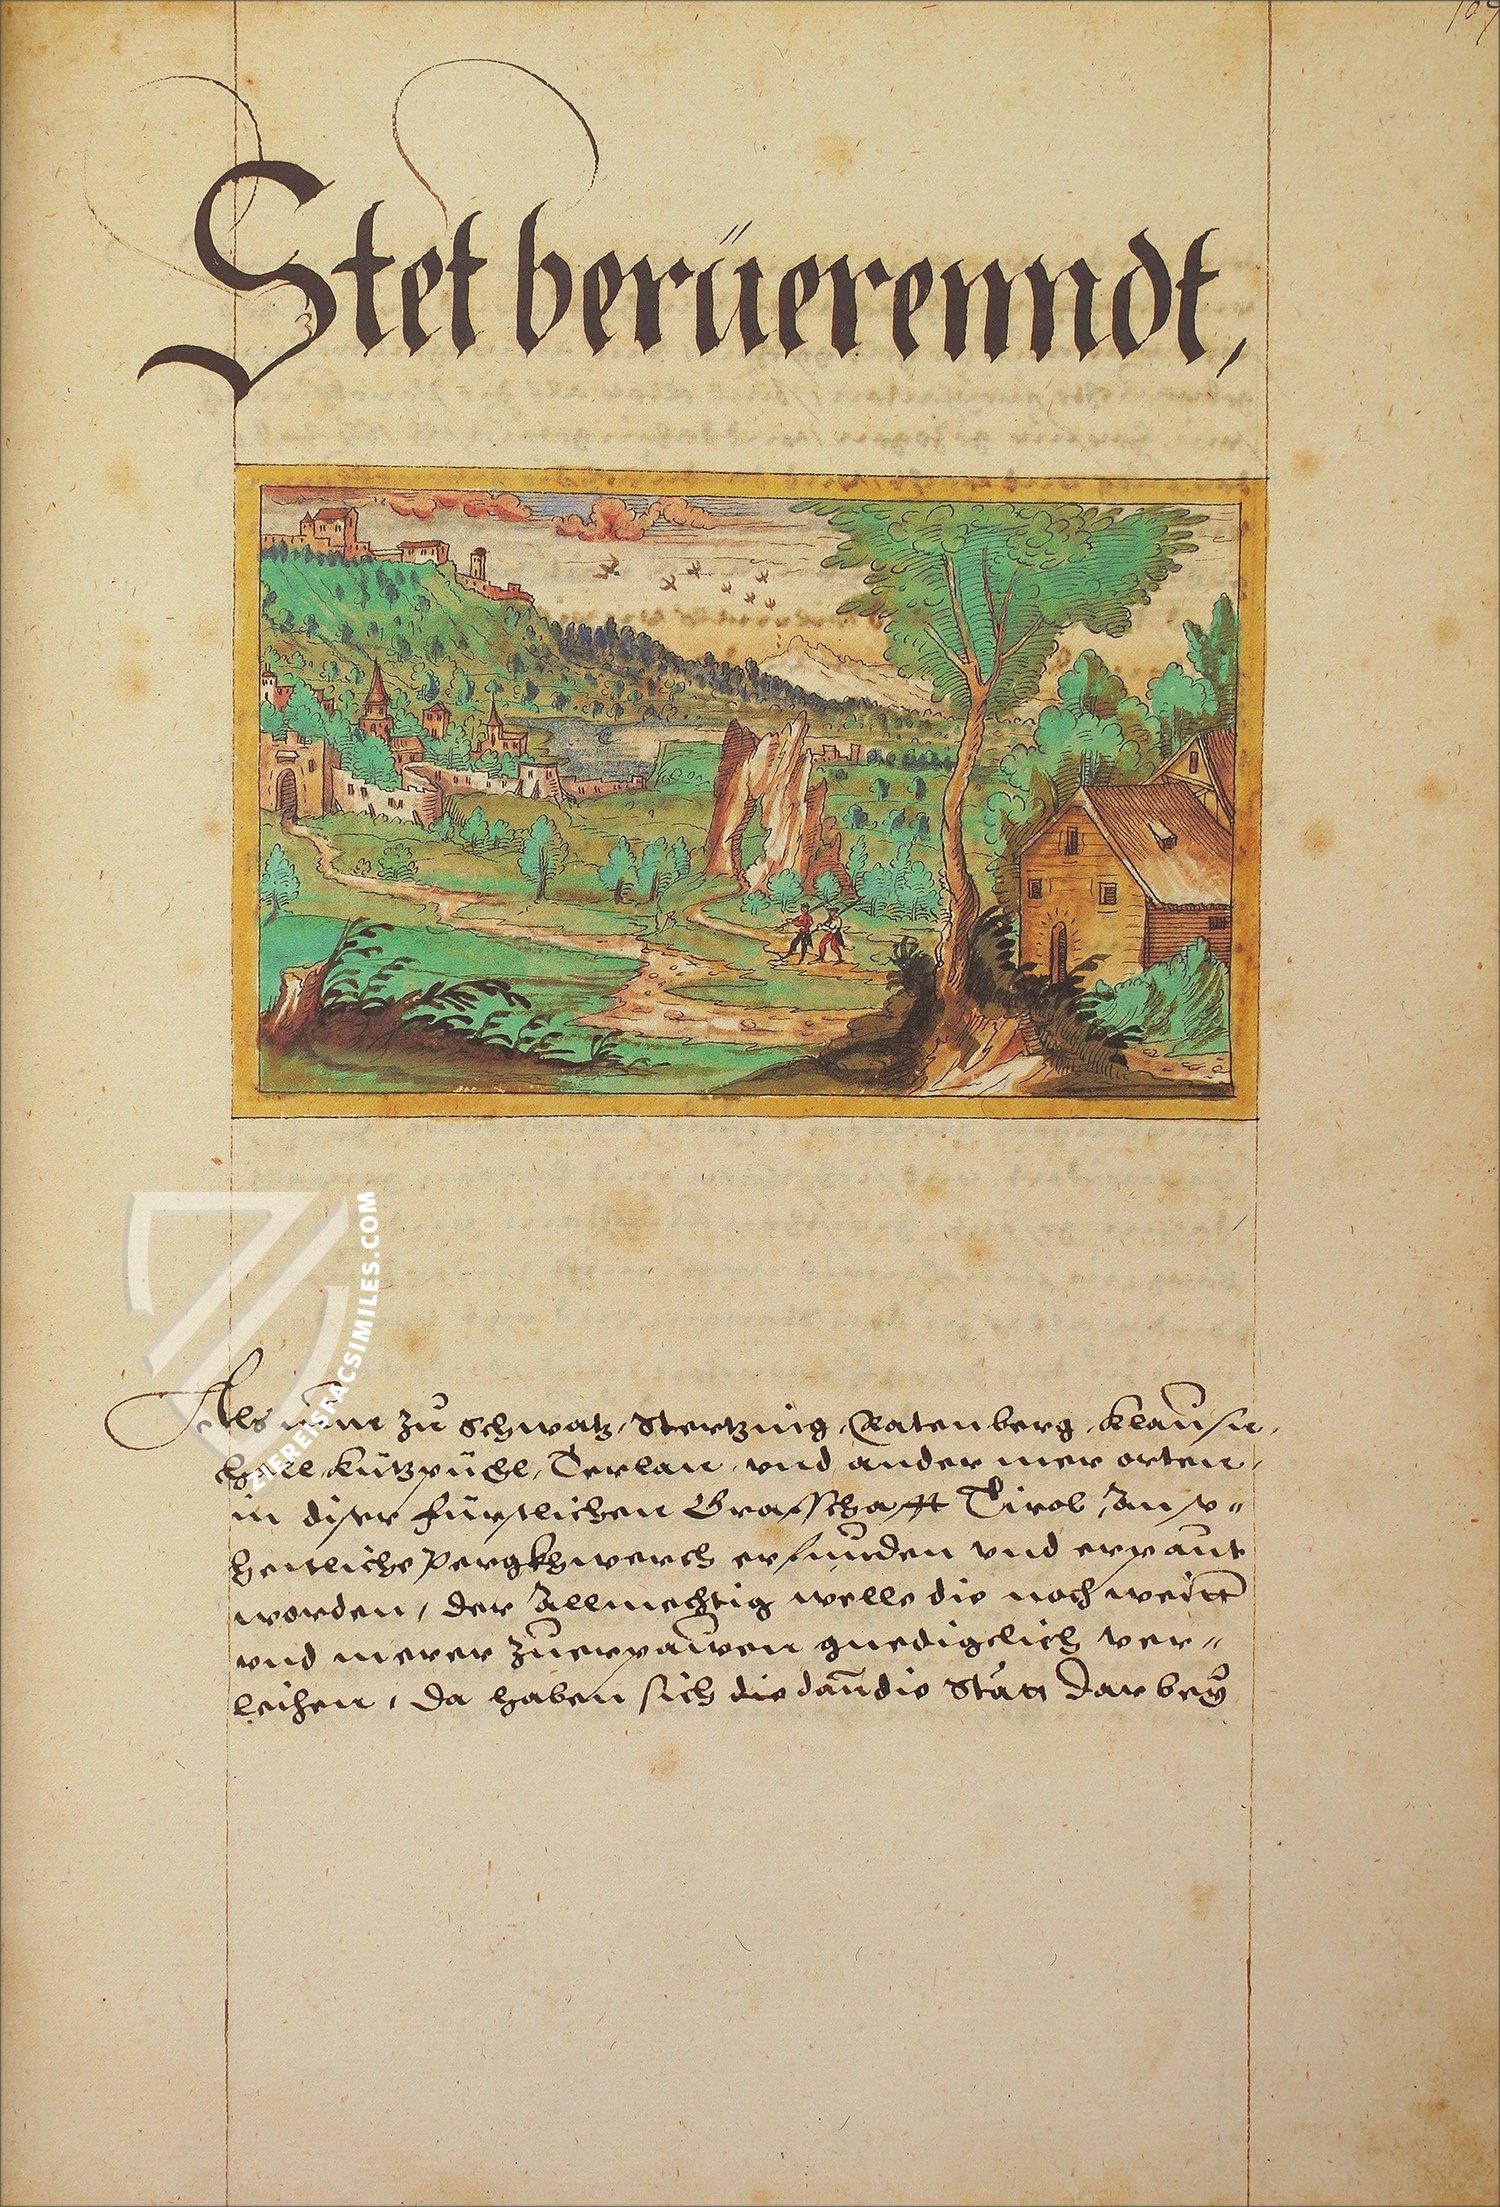 107
Stet berüerenndt,
Als nun zu Schwatz, Stertzing, Ratenberg, Klausn,
Hall, Kützpüchl, Terlan, vnd ander mer orten,
in diser fürstlichen Graffschafft Tirol, Anse-
hentliche Pergkhwerch erfunden vnd erpaut
worden, der Allmechtig welle die noch weitt
vnd merer zuerpauen gnedigclich ver-
leichen, Da haben sich die dann die Stätt Dar bey
ZIEREISFACSIMILES.COM